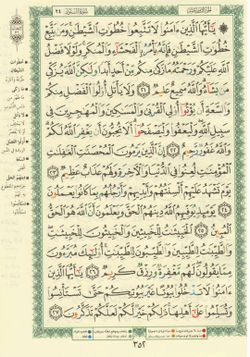 يَٰٓأَيُّهَا ٱلَّذِينَ ءَامَنُوا۟ لَا تَتَّبِعُوا۟ خُطُوَٰتِ ٱلشَّيْطَٰنِ وَمَن يَتَّبِعْ
خُطُوَٰتِ ٱلشَّيْطَٰنِ فَإِنَّهُۥ يَأْمُرُ بِٱلْفَحْشَآءِ وَٱلْمُنكَرِ وَلَوْلَا فَضْلُ
ٱللَّهِ عَلَيْكُمْ وَرَحْمَتُهُۥ مَا زَكَىٰ مِنكُم مِّنْ أَحَدٍ أَبَدًا وَلَٰكِنَّ ٱللَّهَ يُزَكِّى
مَن يَشَآءُ وَٱللَّهُ سَمِيعٌ عَلِيمٌ ٢١ وَلَا يَأْتَلِ أُو۟لُوا۟ ٱلْفَضْلِ مِنكُمْ
وَٱلسَّعَةِ أَن يُؤْتُوٓا۟ أُو۟لِى ٱلْقُرْبَىٰ وَٱلْمَسَٰكِينَ وَٱلْمُهَٰجِرِينَ فِى
سَبِيلِ ٱللَّهِ وَلْيَعْفُوا۟ وَلْيَصْفَحُوٓا۟ أَلَا تُحِبُّونَ أَن يَغْفِرَ ٱللَّهُ لَكُمْ
وَٱللَّهُ غَفُورٌ رَّحِيمٌ ٢٢ إِنَّ ٱلَّذِينَ يَرْمُونَ ٱلْمُحْصَنَٰتِ ٱلْغَٰفِلَٰتِ
ٱلْمُؤْمِنَٰتِ لُعِنُوا۟ فِى ٱلدُّنْيَا وَٱلْءَاخِرَةِ وَلَهُمْ عَذَابٌ عَظِيمٌ ٢٣
يَوْمَ تَشْهَدُ عَلَيْهِمْ أَلْسِنَتُهُمْ وَأَيْدِيهِمْ وَأَرْجُلُهُم بِمَا كَانُوا۟ يَعْمَلُونَ
٢٤ يَوْمَئِذٍ يُوَفِّيهِمُ ٱللَّهُ دِينَهُمُ ٱلْحَقَّ وَيَعْلَمُونَ أَنَّ ٱللَّهَ هُوَ ٱلْحَقُّ
ٱلْمُبِينُ ٢٥ ٱلْخَبِيثَٰتُ لِلْخَبِيثِينَ وَٱلْخَبِيثُونَ لِلْخَبِيثَٰتِ
وَٱلطَّيِّبَٰتُ لِلطَّيِّبِينَ وَٱلطَّيِّبُونَ لِلطَّيِّبَٰتِ أُو۟لَٰٓئِكَ مُبَرَّءُونَ
مِمَّا يَقُولُونَ لَهُم مَّغْفِرَةٌ وَرِزْقٌ كَرِيمٌ ٢٦ يَٰٓأَيُّهَا ٱلَّذِينَ
ءَامَنُوا۟ لَا تَدْخُلُوا۟ بُيُوتًا غَيْرَ بُيُوتِكُمْ حَتَّىٰ تَسْتَأْنِسُوا۟
وَتُسَلِّمُوا۟ عَلَىٰٓ أَهْلِهَا ذَٰلِكُمْ خَيْرٌ لَّكُمْ لَعَلَّكُمْ تَذَكَّرُونَ ٢٧
٣٥٢